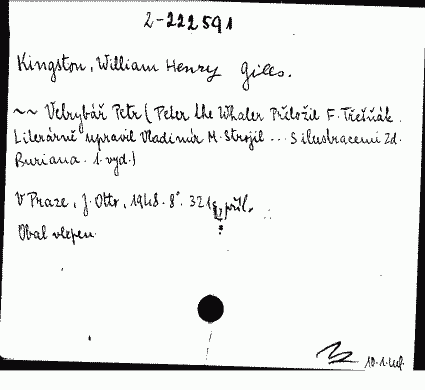 2-222591
Kingston, William Henry Giles.
~~ Velrybář Petr (Peter the Whaler Přeložil F. Třešňák.
Literárně upravil Vladimír M. Strojil ... S ilustracemi Zd.
Buriana. 1. vyd.)
V Praze, J. Otto, 1948. 8°. 321 příl.
Obal vlepen.